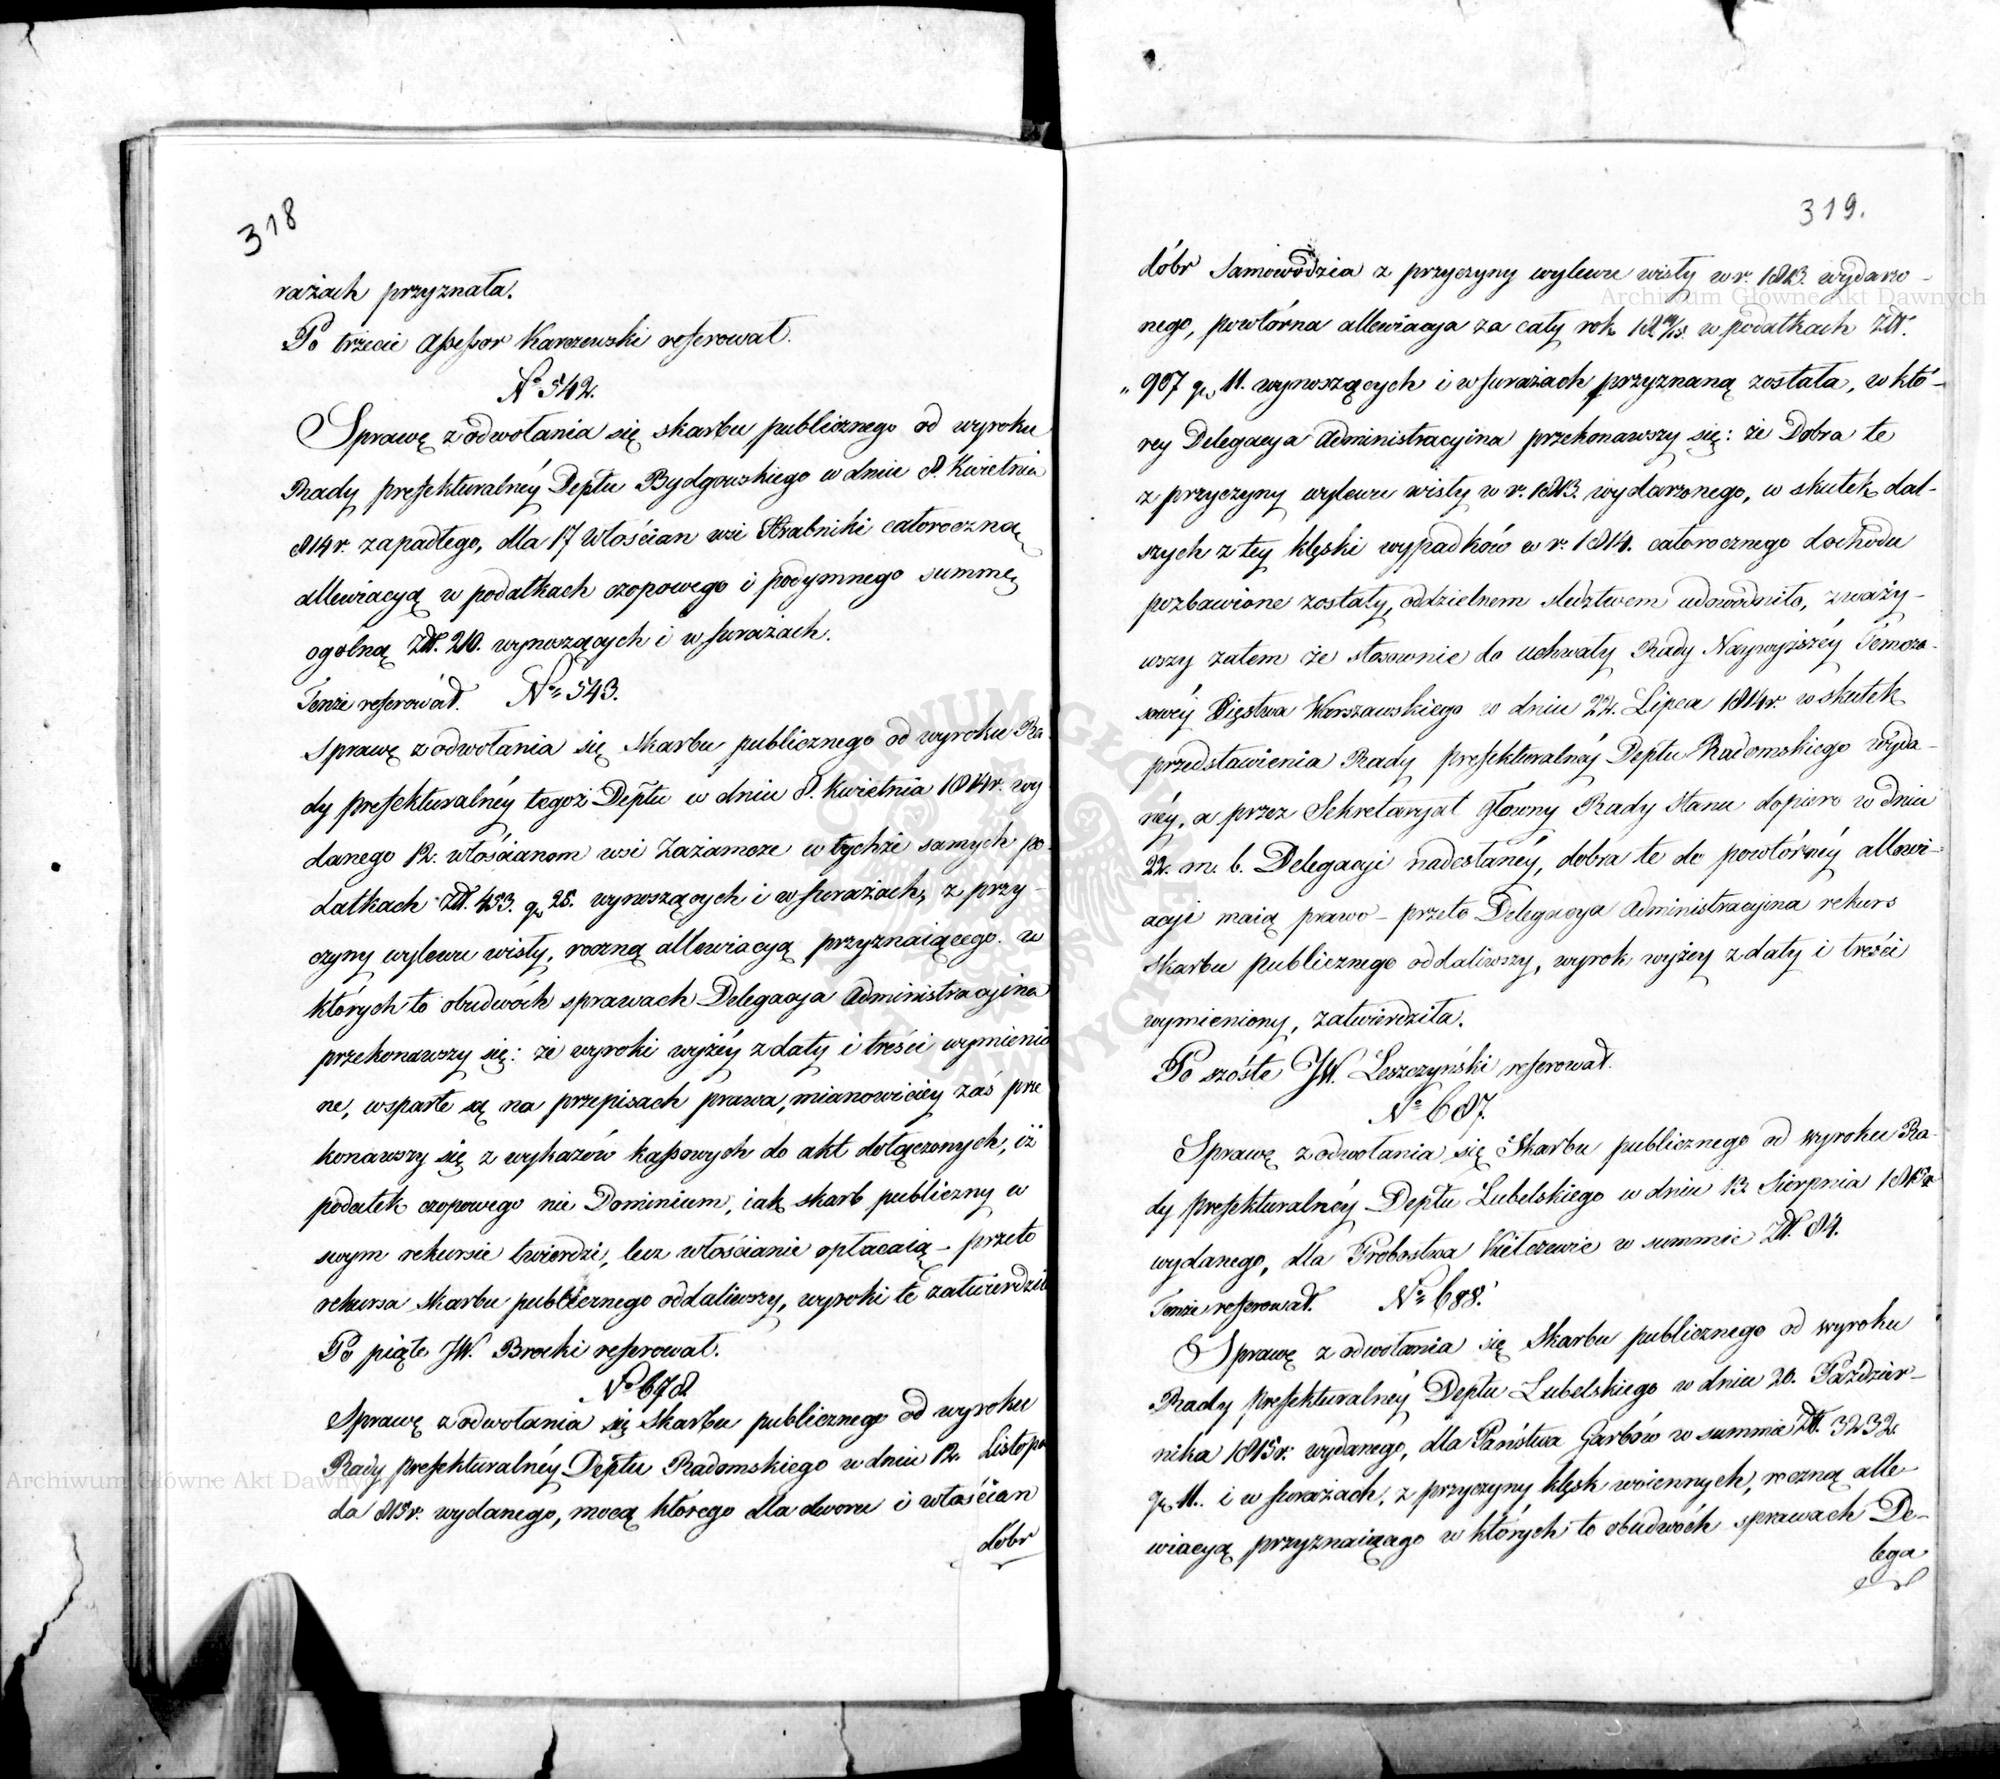 318
rażach przyznała.
Po trzecie Assessor Karczewski referował.
No 542.
Sprawę z odwołania się skarbu publicznego od wyroku
Rady prefekturalnéy Deptu Bydgowskiego w dniu 8. Kwietnia
814 r. zapadłego, dla 17 Włościan wsi Strabniki całoroczną
allewiacyą w podatkach czopowego i podymnego summę
ogolną Złt. 210. wynoszących i w furażach.
Tenże referował. No 543.
Sprawę z odwołania się skarbu publicznego od wyroku Ra
dy prefekturalnéy tegoż Deptu w dniu 8. Kwietnia 1814 r. wy
danego 12. włościanom wsi Zażamcze w tychże samych po
datkach Złt. 453. gr 25. wynoszących i w furażach, z przy-
czyny wylewu wisły, roczną allewiacyą przyznaiącego. w
których to obudwóch sprawach Delegacya Administracyina
przekonawszy się: że wyroki wyżéy z daty i treści wymienio
ne, wsparte są na przepisach prawa, mianowiciey zaś prze
konawszy się z wykazów kassowych do akt dołączonych, iż
podatek czopowego nie Dominium, iak skarb publiczny w
swym rekursie twierdzi, lecz włościanie opłacaią – przeto
rekursa skarbu publicznego oddaliwszy, wyroki te zatwierdził
Po piąte JW. Brocki referował.
No 678
Sprawę z odwołania się skarbu publicznego od wyroku
Rady prefekturalnéy Deptu Radomskiego w dniu 12. Listopa
da 813 r. wydanego, mocą którego dla dworu i włościan
dóbr
319.
dóbr Samowodzia z przyczyny wylewu wisły w r. 1813. wydarzo-
nego, powtórna allewiacya za cały rok 1814/15. w podatkach Złt.
„ 907 gr 11. wynoszących i w furażach przyznaną została, w któ-
rey Delegacya Administracyina przekonawszy się: że Dobra te
z przyczyny wylewu wisły w r. 1813. wydarzonego, w skutek dal-
szych z tey klęski wypadków w r. 1814. całorocznego dochodu
pozbawione zostały, oddzielnem śledztwem udowodniło, zważy-
wszy zatem że stosownie do uchwały Rady Naywyższéy Temcza-
sowéy Xięstwa Warszawskiego w dniu 22. Lipca 1814 r. w skutek
przedstawienia Rady prefekturalnéy Deptu Radomskiego wyda-
néy, a przez Sekretaryat Główny Rady Stanu dopiero w dniu
22. m. b. Delegacyi nadesłanéy, dobra te do powtórnéy allewi-
acyi maią prawo – przeto Delegacya Administracyina rekurs
skarbu publicznego oddaliwszy, wyrok wyżey z daty i treści
wymieniony, zatwierdziła.
Po szóste JW. Leszczyński referował.
No 687.
Sprawę z odwołania się Skarbu publicznego od wyroku Ra-
dy prefekturalnéy Deptu Lubelskiego w dniu 13 Sierpnia
wydanego, dla Probostwa Kiełczewie w summie Złt. 84.
Tenże referował. No 688.
Sprawę z odwołania się Skarbu publicznego od wyroku
Rady prefekturalnéy Deptu Lubelskiego w dniu 20. Paździer-
nika 1815 r. wydanego, dla Państwa Garbów w summie Złt. 3232.
gr 11. i w furażach, z przyczyny klęsk woiennych, roczną alle-
wiacyą przyznaiącego w których to obudwóch sprawach De-
lega
Archiwum Główne Akt Dawnych
Archiwum Główne Akt Dawnych
ARCHIWUM GŁÓWNE AKT DAWNYCH